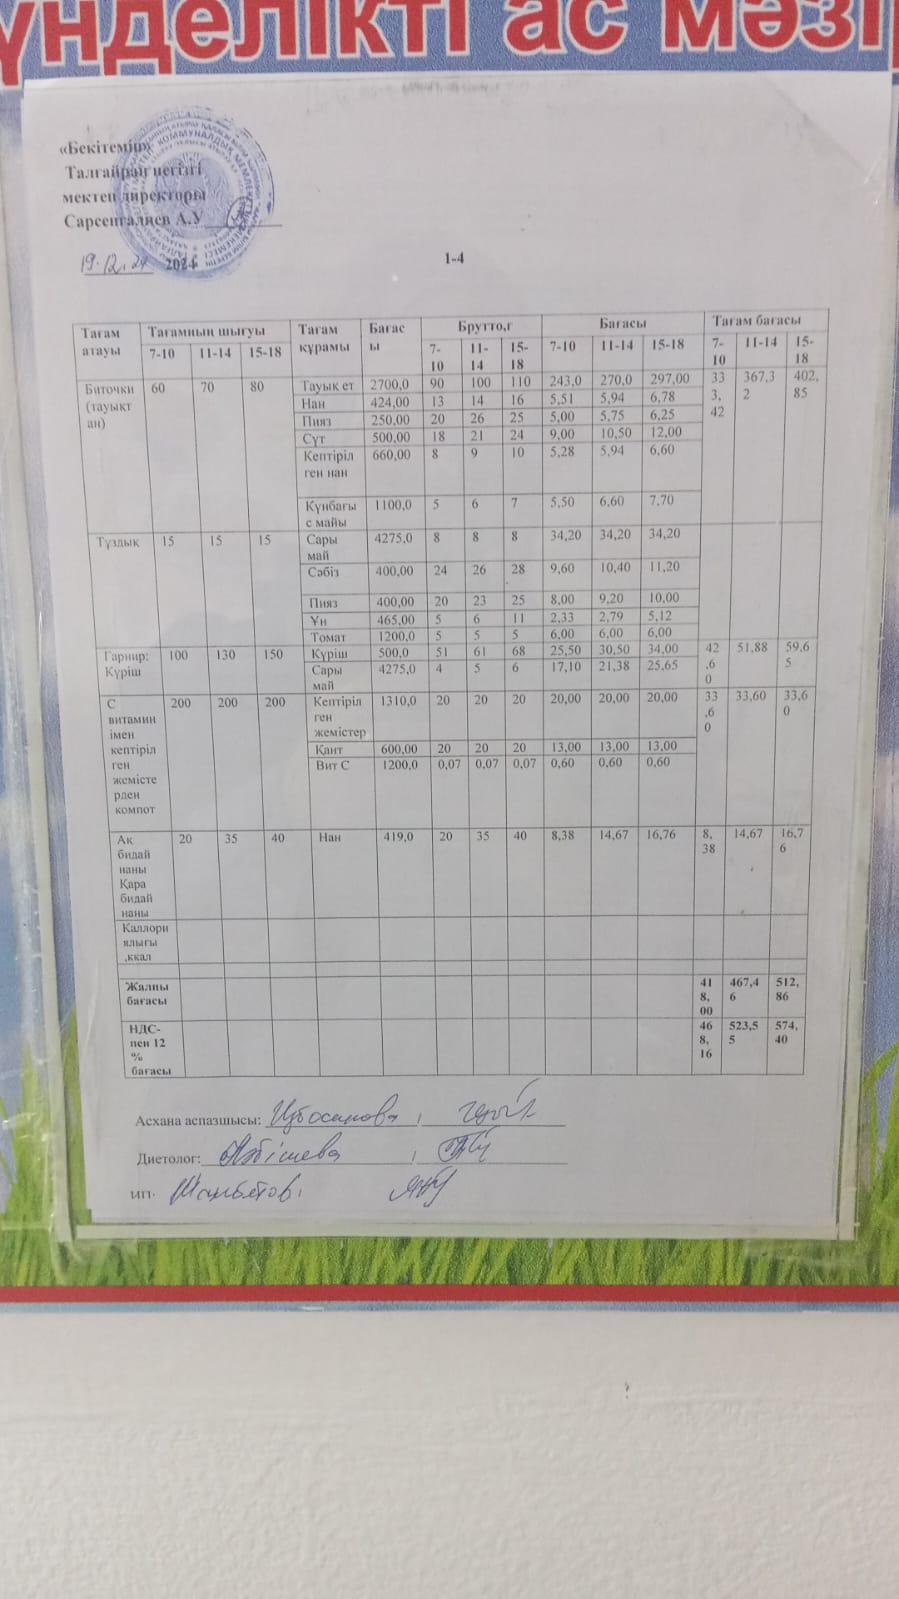 үнделікті ас мәзір
«Бекітемін»
Талғайраң негізгі
мектеп директоры
Сарсенғалиев А.У
19.12.24 2024
1-4
Тағам атауы Тағамның шығуы Тағам құрамы Бағасы Брутто,г Бағасы Тағам бағасы
7-10 11-14 15-18 7-10 11-14 15-18 7-10 11-14 15-18 7-10 11-14 15-18
Биточки (тауықтан) 60 70 80 Тауық ет 2700,0 90 100 110 243,0 270,0 297,00 333,42 367,32 402,85
Нан 424,00 13 14 16 5,51 5,94 6,78
Пияз 250,00 20 26 25 5,00 5,75 6,25
Сүт 500,00 18 21 24 9,00 10,50 12,00
Кептірілген нан 660,00 8 9 10 5,28 5,94 6,60
Күнбағыс майы 1100,0 5 6 7 5,50 6,60 7,70
Тұздық 15 15 15 Сары май 4275,0 8 8 8 34,20 34,20 34,20
Сәбіз 400,00 24 26 28 9,60 10,40 11,20
Пияз 400,00 20 23 25 8,00 9,20 10,00
Ұн 465,00 5 6 11 2,33 2,79 5,12
Томат 1200,0 5 5 5 6,00 6,00 6,00
Гарнир: Күріш 100 130 150 Күріш 500,0 51 61 68 25,50 30,50 34,00 42,60 51,88 59,65
Сары май 4275,0 4 5 6 17,10 21,38 25,65
С витаминімен кептірілген жемістерден компот 200 200 200 Кептірілген жемістер 1310,0 20 20 20 20,00 20,00 20,00 33,60 33,60 33,60
Қант 600,00 20 20 20 13,00 13,00 13,00
Вит С 1200,0 0,07 0,07 0,07 0,60 0,60 0,60
Ақ бидай наны Қара бидай наны 20 35 40 Нан 419,0 20 35 40 8,38 14,67 16,76 8,38 14,67 16,76
Каллориялығы ,ккал
Жалпы бағасы 418,00 467,46 512,86
НДС-пен 12 % бағасы 468,16 523,55 574,40
Асхана аспазшысы:
Диетолог:
ИП·